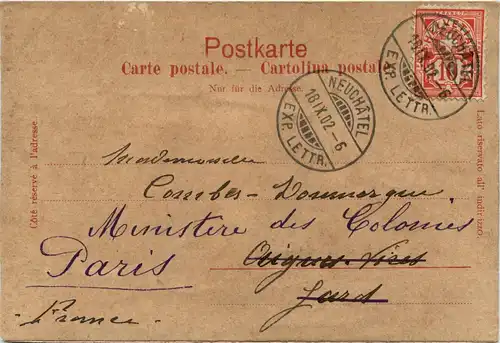 Postkarte
Carte postale. — Cartolina postal
Nur für die Adresse.
NEUCHÂTEL
18 IX.02-6
EXP. LETTR.
NEUCHÂTEL
18 IX.02-6
EXP. LETTR.
10
Côté réservé à l'adresse.
Lato riservato all' indirizzo
Mademoiselle
Combes-Doumergue
Ministère des Colonies
Aigues-Vives
Paris
Gard
- France -